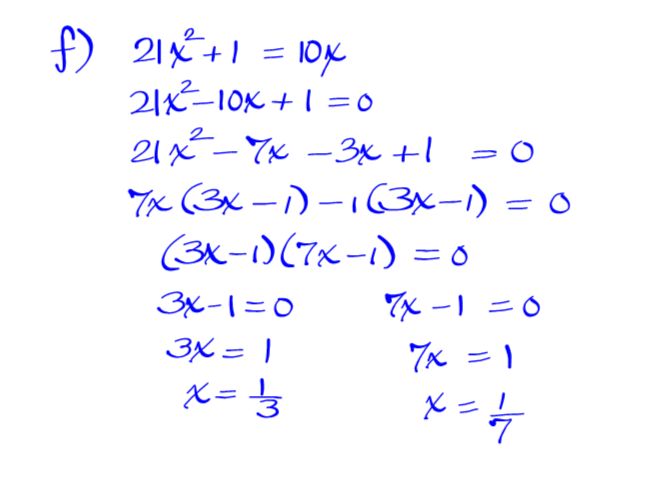 f) 21x² + 1 = 10x
21x² - 10x + 1 = 0
21x² - 7x - 3x + 1 = 0
7x (3x - 1) - 1 (3x - 1) = 0
(3x - 1) (7x - 1) = 0
3x - 1 = 0 7x - 1 = 0
3x = 1 7x = 1
x = 1/3 x = 1/7